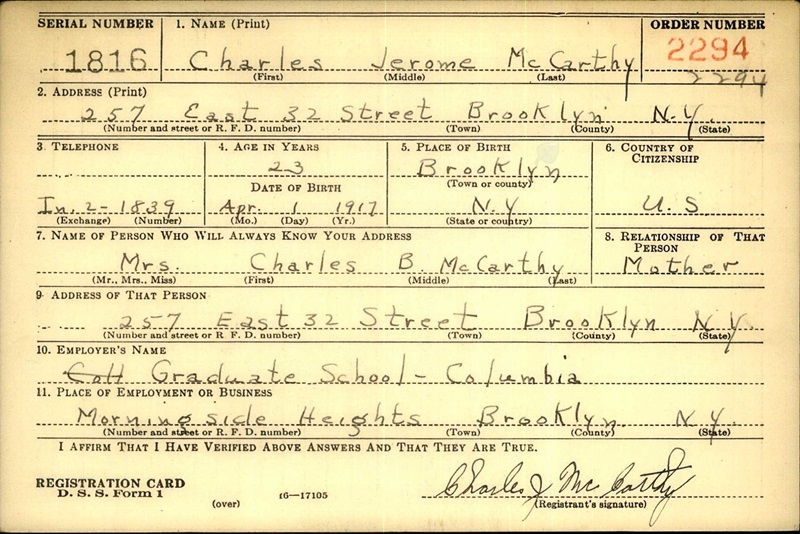 SERIAL NUMBER 1. NAME (Print) ORDER NUMBER
1816 Charles Jerome McCarthy 2294
(First) (Middle) (Last) 2294
2. ADDRESS (Print)
257 East 32 Street Brooklyn N.Y.
(Number and street or R. F. D. number) (Town) (County) (State)
3. TELEPHONE 4. AGE IN YEARS 5. PLACE OF BIRTH 6. COUNTRY OF CITIZENSHIP
23 Brooklyn
DATE OF BIRTH (Town or county)
In. 2-1839 Apr. 1 1917 N.Y U.S.
(Exchange) (Number) (Mo.) (Day) (Yr.) (State or country)
7. NAME OF PERSON WHO WILL ALWAYS KNOW YOUR ADDRESS 8. RELATIONSHIP OF THAT PERSON
Mrs. Charles B. McCarthy Mother
(Mr., Mrs., Miss) (First) (Middle) (Last)
9. ADDRESS OF THAT PERSON
257 East 32 Street Brooklyn N.Y.
(Number and street or R. F. D. number) (Town) (County) (State)
10. EMPLOYER'S NAME
Graduate School - Columbia
11. PLACE OF EMPLOYMENT OR BUSINESS
Morningside Heights Brooklyn N.Y.
(Number and street or R. F. D. number) (Town) (County) (State)
I AFFIRM THAT I HAVE VERIFIED ABOVE ANSWERS AND THAT THEY ARE TRUE.
REGISTRATION CARD
D. S. S. Form 1 (over) 16-17105 Charles J McCarthy
(Registrant's signature)